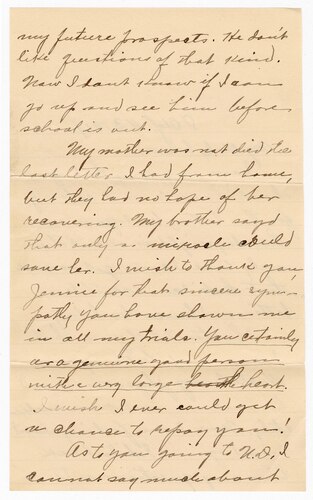 my future prospects. He don't
like questions of that kind.
Now I dont know if I can
go up and see him before
school is out.
My mother was not died the
last letter I had from home,
but they had no hope of her
recovering. My brother sayd
that only a miracle could
save her. I wish to thank you
Jennie for that sincere sym-
pathy you have shown me
in all my trials. You certainly
are a genuine good person
with a very large heart.
I wish I ever could get
a chance to repay you!
As to you going to N.D. I
cannot say much about